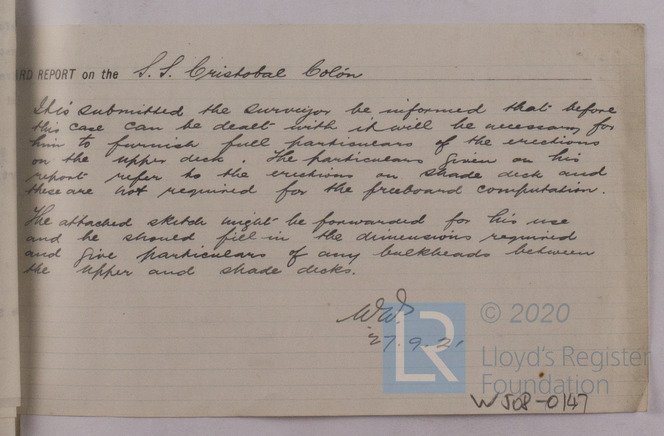 ARD REPORT on the S.S. Cristobal Colón
It is submitted the surveyor be informed that before
this case can be dealt with it will be necessary for
him to furnish full particulars of the erections
on the upper deck. The particulars given on his
report refer to the erections on shade deck and
these are not required for the freeboard computation.
The attached sketch might be forwarded for his use
and he should fill in the dimensions required
and give particulars of any bulkheads between
the upper and shade decks.
27.9.21
© 2020
LR
Lloyd's Register
Foundation
W508-0147